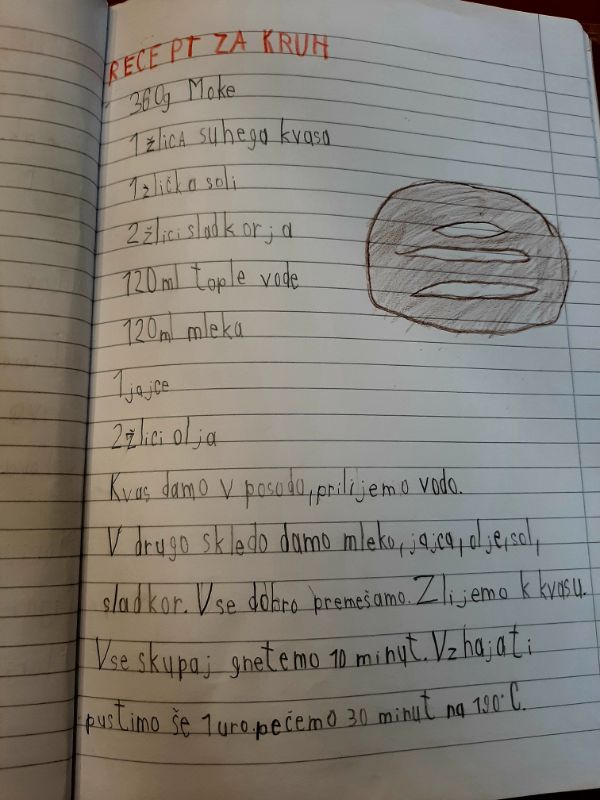 RECEPT ZA KRUH
360g Moke
1 žlicA suhega kvasa
1 žlička soli
2 žlici sladkorja
120ml tople vode
120ml mleka
1 jajce
2 žlici olja
Kvas damo v posodo, prilijemo vodo.
V drugo skledo damo mleko, jajca, olje, sol,
sladkor. Vse dobro premešamo. Zlijemo k kvasu.
Vse skupaj gnetemo 10 minut. Vzhajati
pustimo še 1 uro. pečemo 30 minut na 190°C.